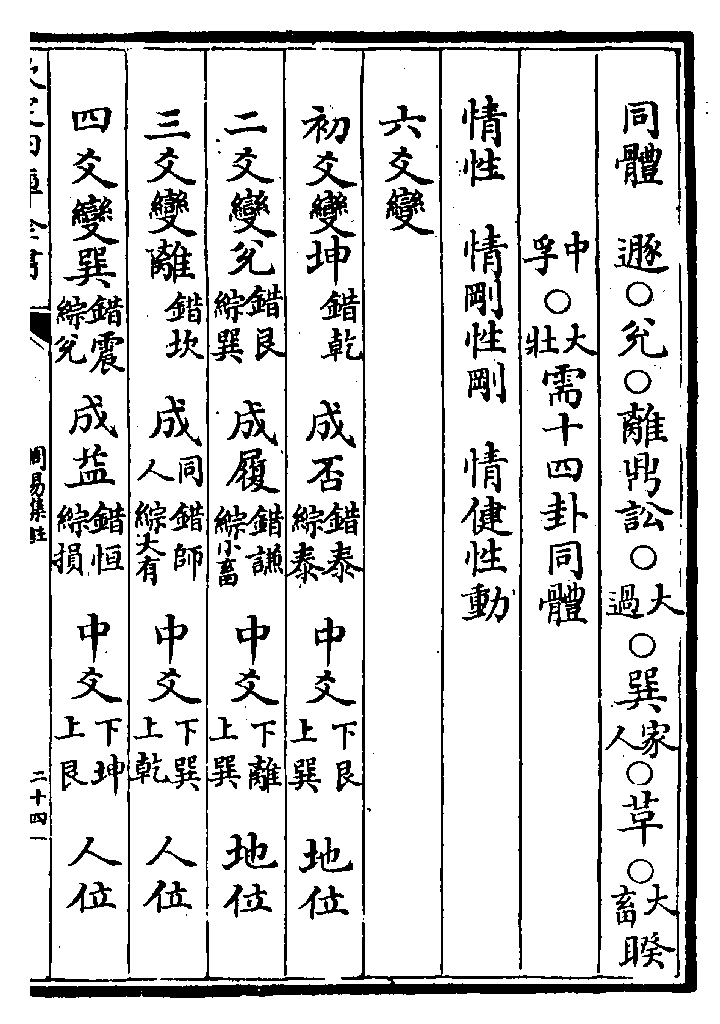 同體　遯○兊○離鼎訟○大過○巽家人○革○大畜睽
中孚○大壯需十四卦同體
情性　情剛性剛　情健性動
六爻變
初爻變坤錯乾　成否錯泰綜泰　中爻下艮上巽　地位
二爻變兊錯艮綜巽　成履錯謙綜小畜　中爻下離上巽　地位
三爻變離錯坎　成同人錯師綜大有　中爻下巽上乾　人位
四爻變巽錯震綜兊　成益錯恒綜損　中爻下坤上艮　人位
欽定四庫全書　周易集註　二十四